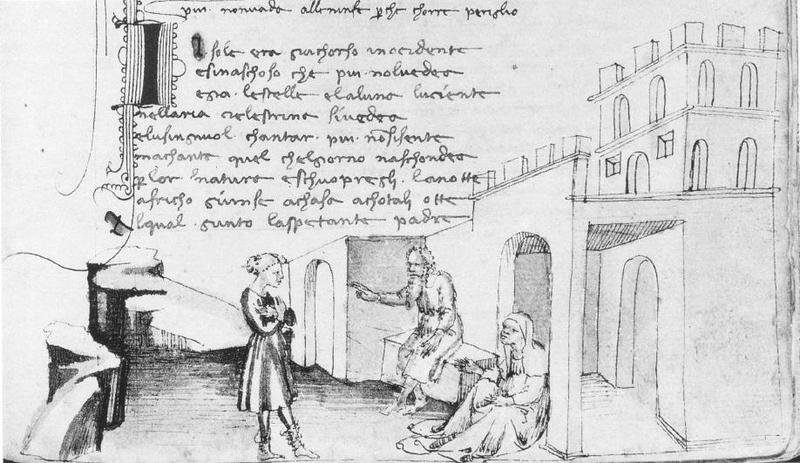 piu · non vado alle ninfe p che chorre periglio
I sole era gia chorso inocidente
esinaschoso che piu · nolvedea
egia · lestelle elaluna luciente
nellaria cielestrina sivedea
elusingnuol chantar · piu · nosisente
machanta quel chelgiorno naschondea
p lor natura eschuopregli · lanotte
africho giunse achasa achotali otte
lqual · giunto laspetante padre